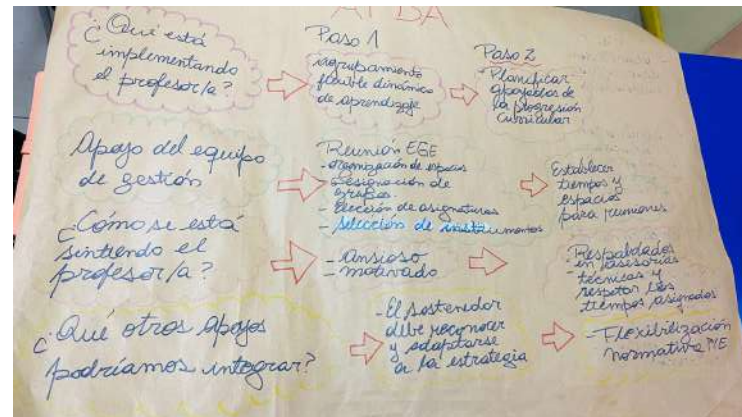 ¿Qué está
implementando
el profesor/a?
Paso 1
agrupamiento
flexible dinámico
de aprendizaje
Paso 2
- Planificar
apoyados de
la progresión
curricular
Apoyo del equipo
de gestión
Reunión EGE
- organización de espacios
- Designación de
- Elección de asignaturas
- selección de instrumentos
Establecer
tiempos y
espacios
para reuniones
¿Cómo se está
sintiendo el
profesor/a?
- Ansioso
- motivado
- Respaldados
en asesorías
técnicas y
respetar los
tiempos asignados
¿Qué otros apoyos
podríamos integrar?
- El sostenedor
debe reconocer
y adaptarse
a la estrategia
- Flexibilización
normativa PIE